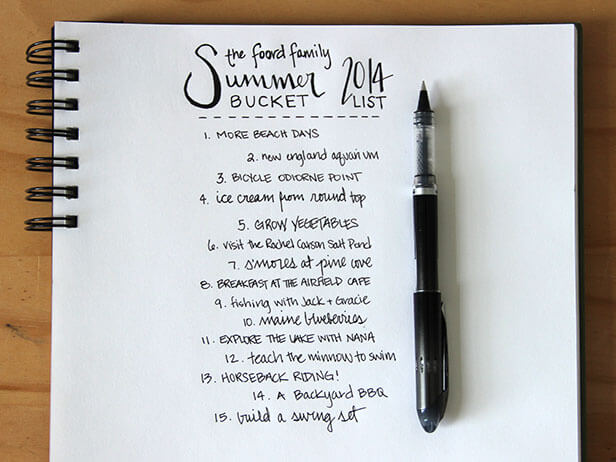 the foord family
Summer 2014
BUCKET LIST
1. MORE BEACH DAYS
2. new england aquarium
3. BICYCLE ODIORNE POINT
4. ice cream from round top
5. GROW VEGETABLES
6. visit the Rachel Carson Salt Pond
7. s'mores at pine cove
8. BREAKFAST AT THE AIRFIELD CAFE
9. fishing with Jack + Gracie
10. maine blueberries
11. EXPLORE THE LAKE WITH NANA
12. teach the minnow to swim
13. HORSEBACK RIDING!
14. A Backyard BBQ
15. build a swing set